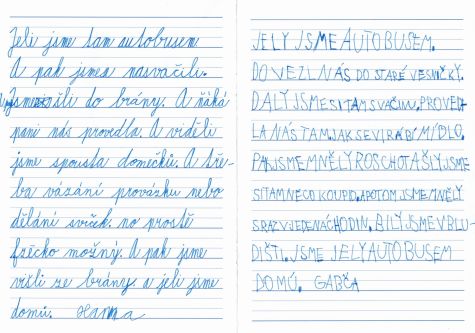 Jeli jsme tam autobusem
A pak jsme nasvačili.
Jsme šli do brány. A ňáká
paní nás provedla. A viděli
jsme spousta domečků. A tře-
ba vázání provázku nebo
dělání svíček. no prostě
fščcko možný. A pak jsme
višli ze brány. a jeli jsme
domů. Hanna
JELY JSME AUTOBUSEM.
DOVEZL NÁS DO STARÉ VESNIČKY.
DALY JSME SI TAM SVAČINU. PROVED-
LA NÁS TAM, JAK SE VIRÁBÍ MÍDLO.
PAK JSME MNĚLY ROSCHOT A ŠLY JSME
SI TAM NĚCO KOUPID. A POTOM JSME MNĚLY
SRAZ V JEDENÁCHODIN. BILY JSME V BLU-
DIŠTI. JSME JELY AUTOBUSEM
DOMŮ. GABČA